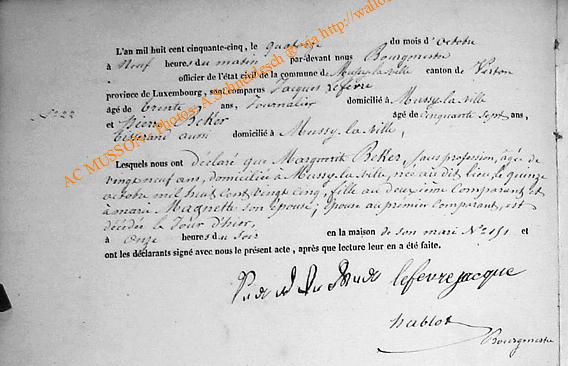 L'an mil huit cent cinquante-cinq, le quatorze du mois d'octobre
à neuf heures du matin par-devant nous Bourgmestre
officier de l'état civil de la commune de Mussy-la-ville canton de Virton
N° 22
province de Luxembourg, sont comparus Jacques Lefevre
âgé de trente ans, Journalier domicilié à Mussy-la-ville
et Pierre Beker âgé de cinquante sept ans,
Tisserand aussi domicilié à Mussy-la-ville,
Lesquels nous ont déclaré que Marguerite Beker, sans profession, âgée de
vingt neuf ans, domiciliée à Mussy-la-ville, née au dit lieu, le quinze
octobre mil huit cent vingt cinq, fille au deuxième Comparent et
à marie Magnette son épouse; épouse au premier Comparant, est
décédée le Jour d'hier,
à onze heures du soir en la maison de son mari N° 151 et
ont les déclarants signé avec nous le présent acte, après que lecture leur en a été faite.
lefevre jacque
hablot
Bourgmestre
AC MUSSON - Photos: A.Schneidesch @ via http://wallo